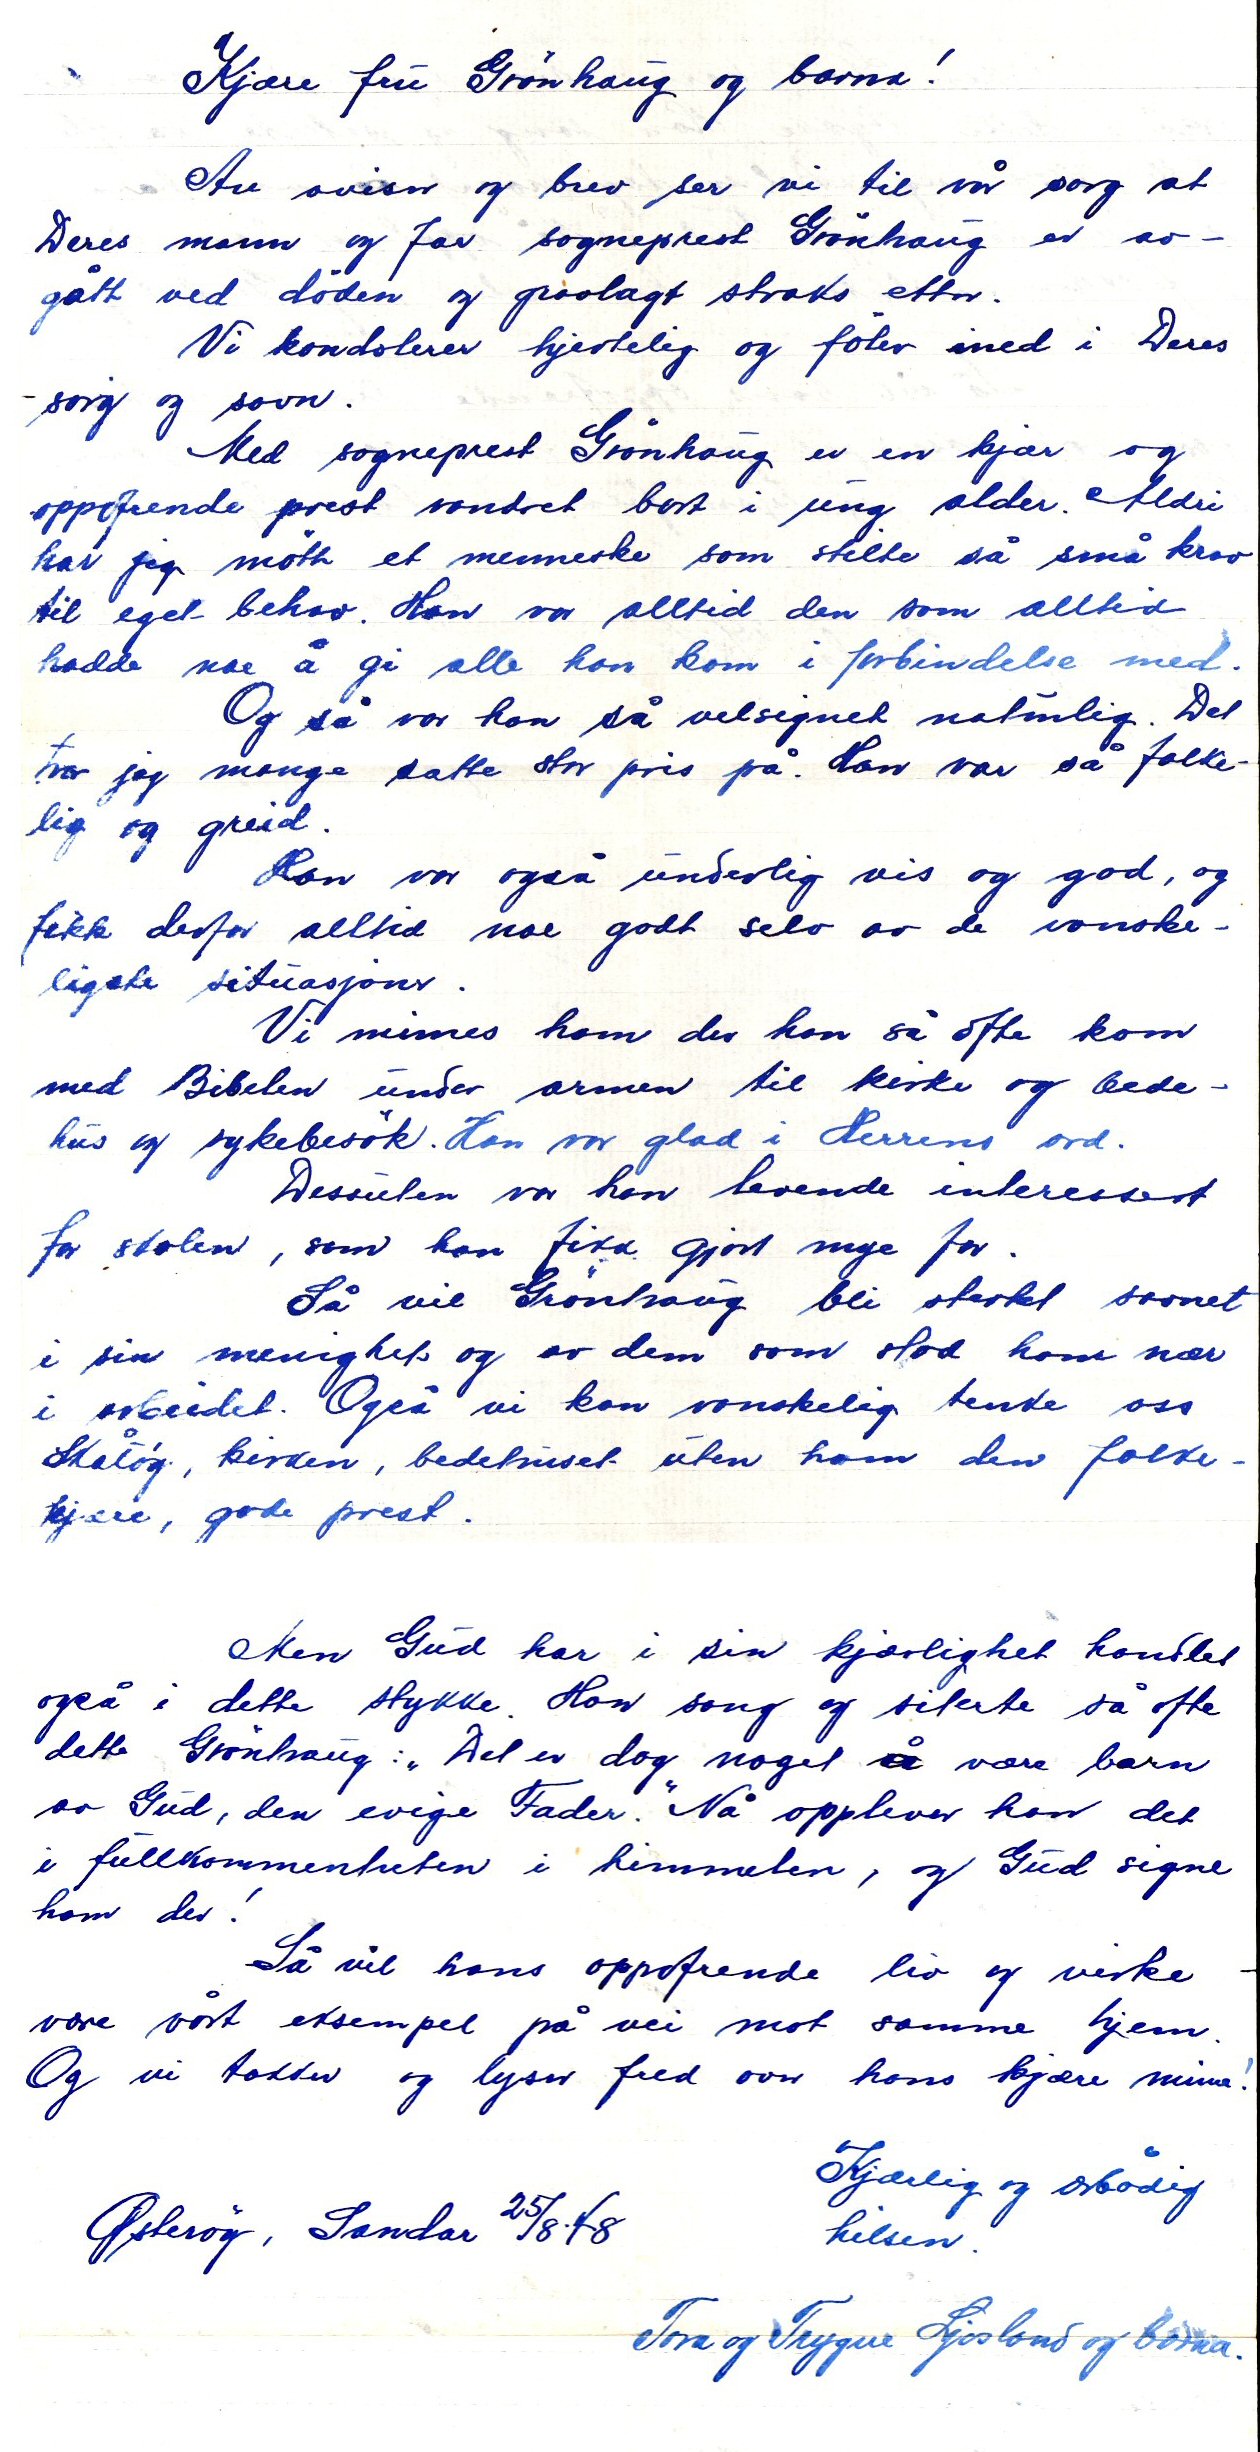 Kjære fru Grönhaug og barna!
Av aviser og brev ser vi til vår sorg at
Deres mann og far sogneprest Grönhaug er av-
gått ved döden og gravlagt straks etter.
Vi kondolerer hjertelig og föler med i Deres
sorg og savn.
Med sogneprest Grönhaug er en kjær og
oppofrende prest vandret bort i ung alder. Aldri
har jeg mött et menneske som stilte så små krav
til eget behov. Han var alltid den som alltid
hadde noe å gi alle han kom i forbindelse med.
Og så var han så velsignet naturlig. Det
tror jeg mange satte stor pris på. Han var så folke-
lig og greid.
Han var også underlig vis og god, og
fikk derfor alltid noe godt selv av de vanske-
ligste situasjoner.
Vi minnes ham der han så ofte kom
med Bibelen under armen til kirke og bede-
hus og sykebesök. Han var glad i Herrens ord.
Dessuten var han levende interessert
for skolen, som han fikk gjort mye for.
Så vil Grönhaug bli sterkt savnet
i sin menighet og av dem som stod ham nær
i arbeidet. Også vi kan vanskelig tenke oss
Skåtöy, kirken, bedehuset uten ham den folke-
kjære, gode prest.
Men Gud har i sin kjærlighet handlet
også i dette stykke. Han sang og siterte så ofte
dette Grönhaug: „Det er dog noget å være barn
av Gud, den evige Fader." Nå opplever han det
i fullkommenheten i himmelen, og Gud signe
ham der!
Så vil hans oppofrende liv og virke
være vårt eksempel på vei mot samme hjem.
Og vi takker og lyser fred over hans kjære minne!
Kjærlig og ærbödig
hilsen.
Østeröy, Sandar 25/8.48
Tora og Trygve Ljosland og barna.